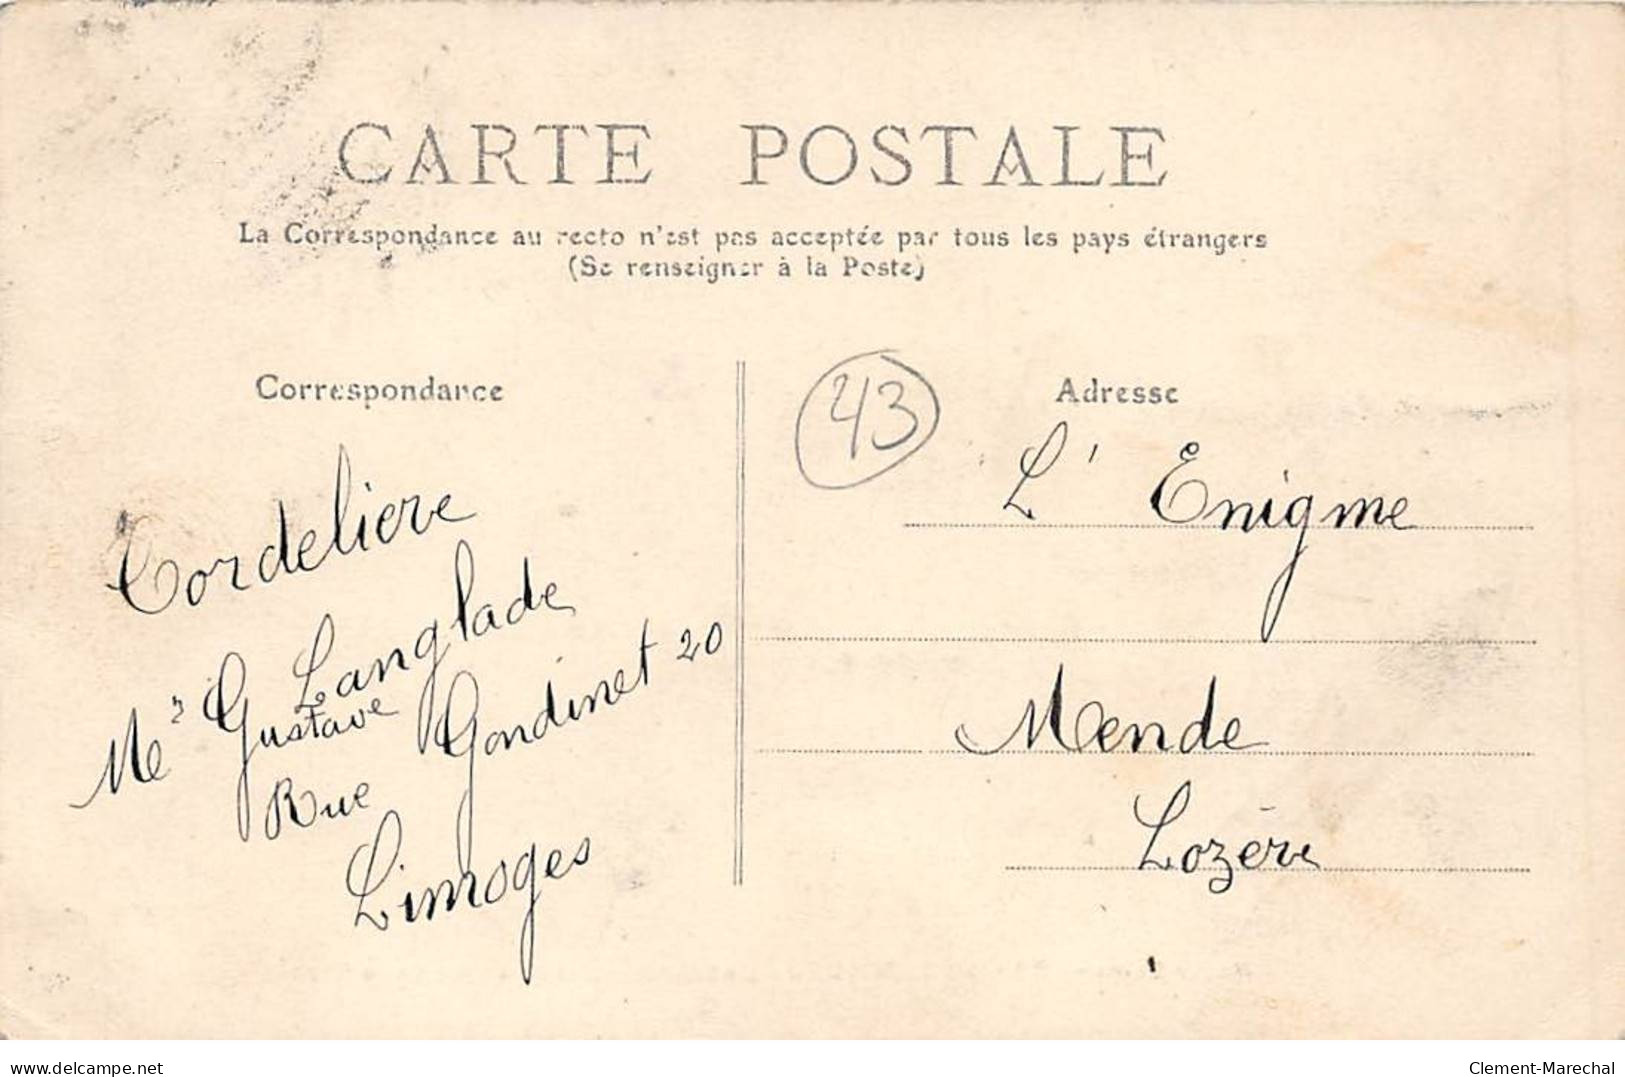 CARTE POSTALE
La Correspondance au recto n'est pas acceptée par tous les pays étrangers
(Se renseigner à la Poste)
Correspondance
Cordeliere
Langlade
Mr Gustave
Rue Gondinet 20
Limoges
43
Adresse
L'Enigme
Mende
Lozère
delcampe.net
Clement-Marechal